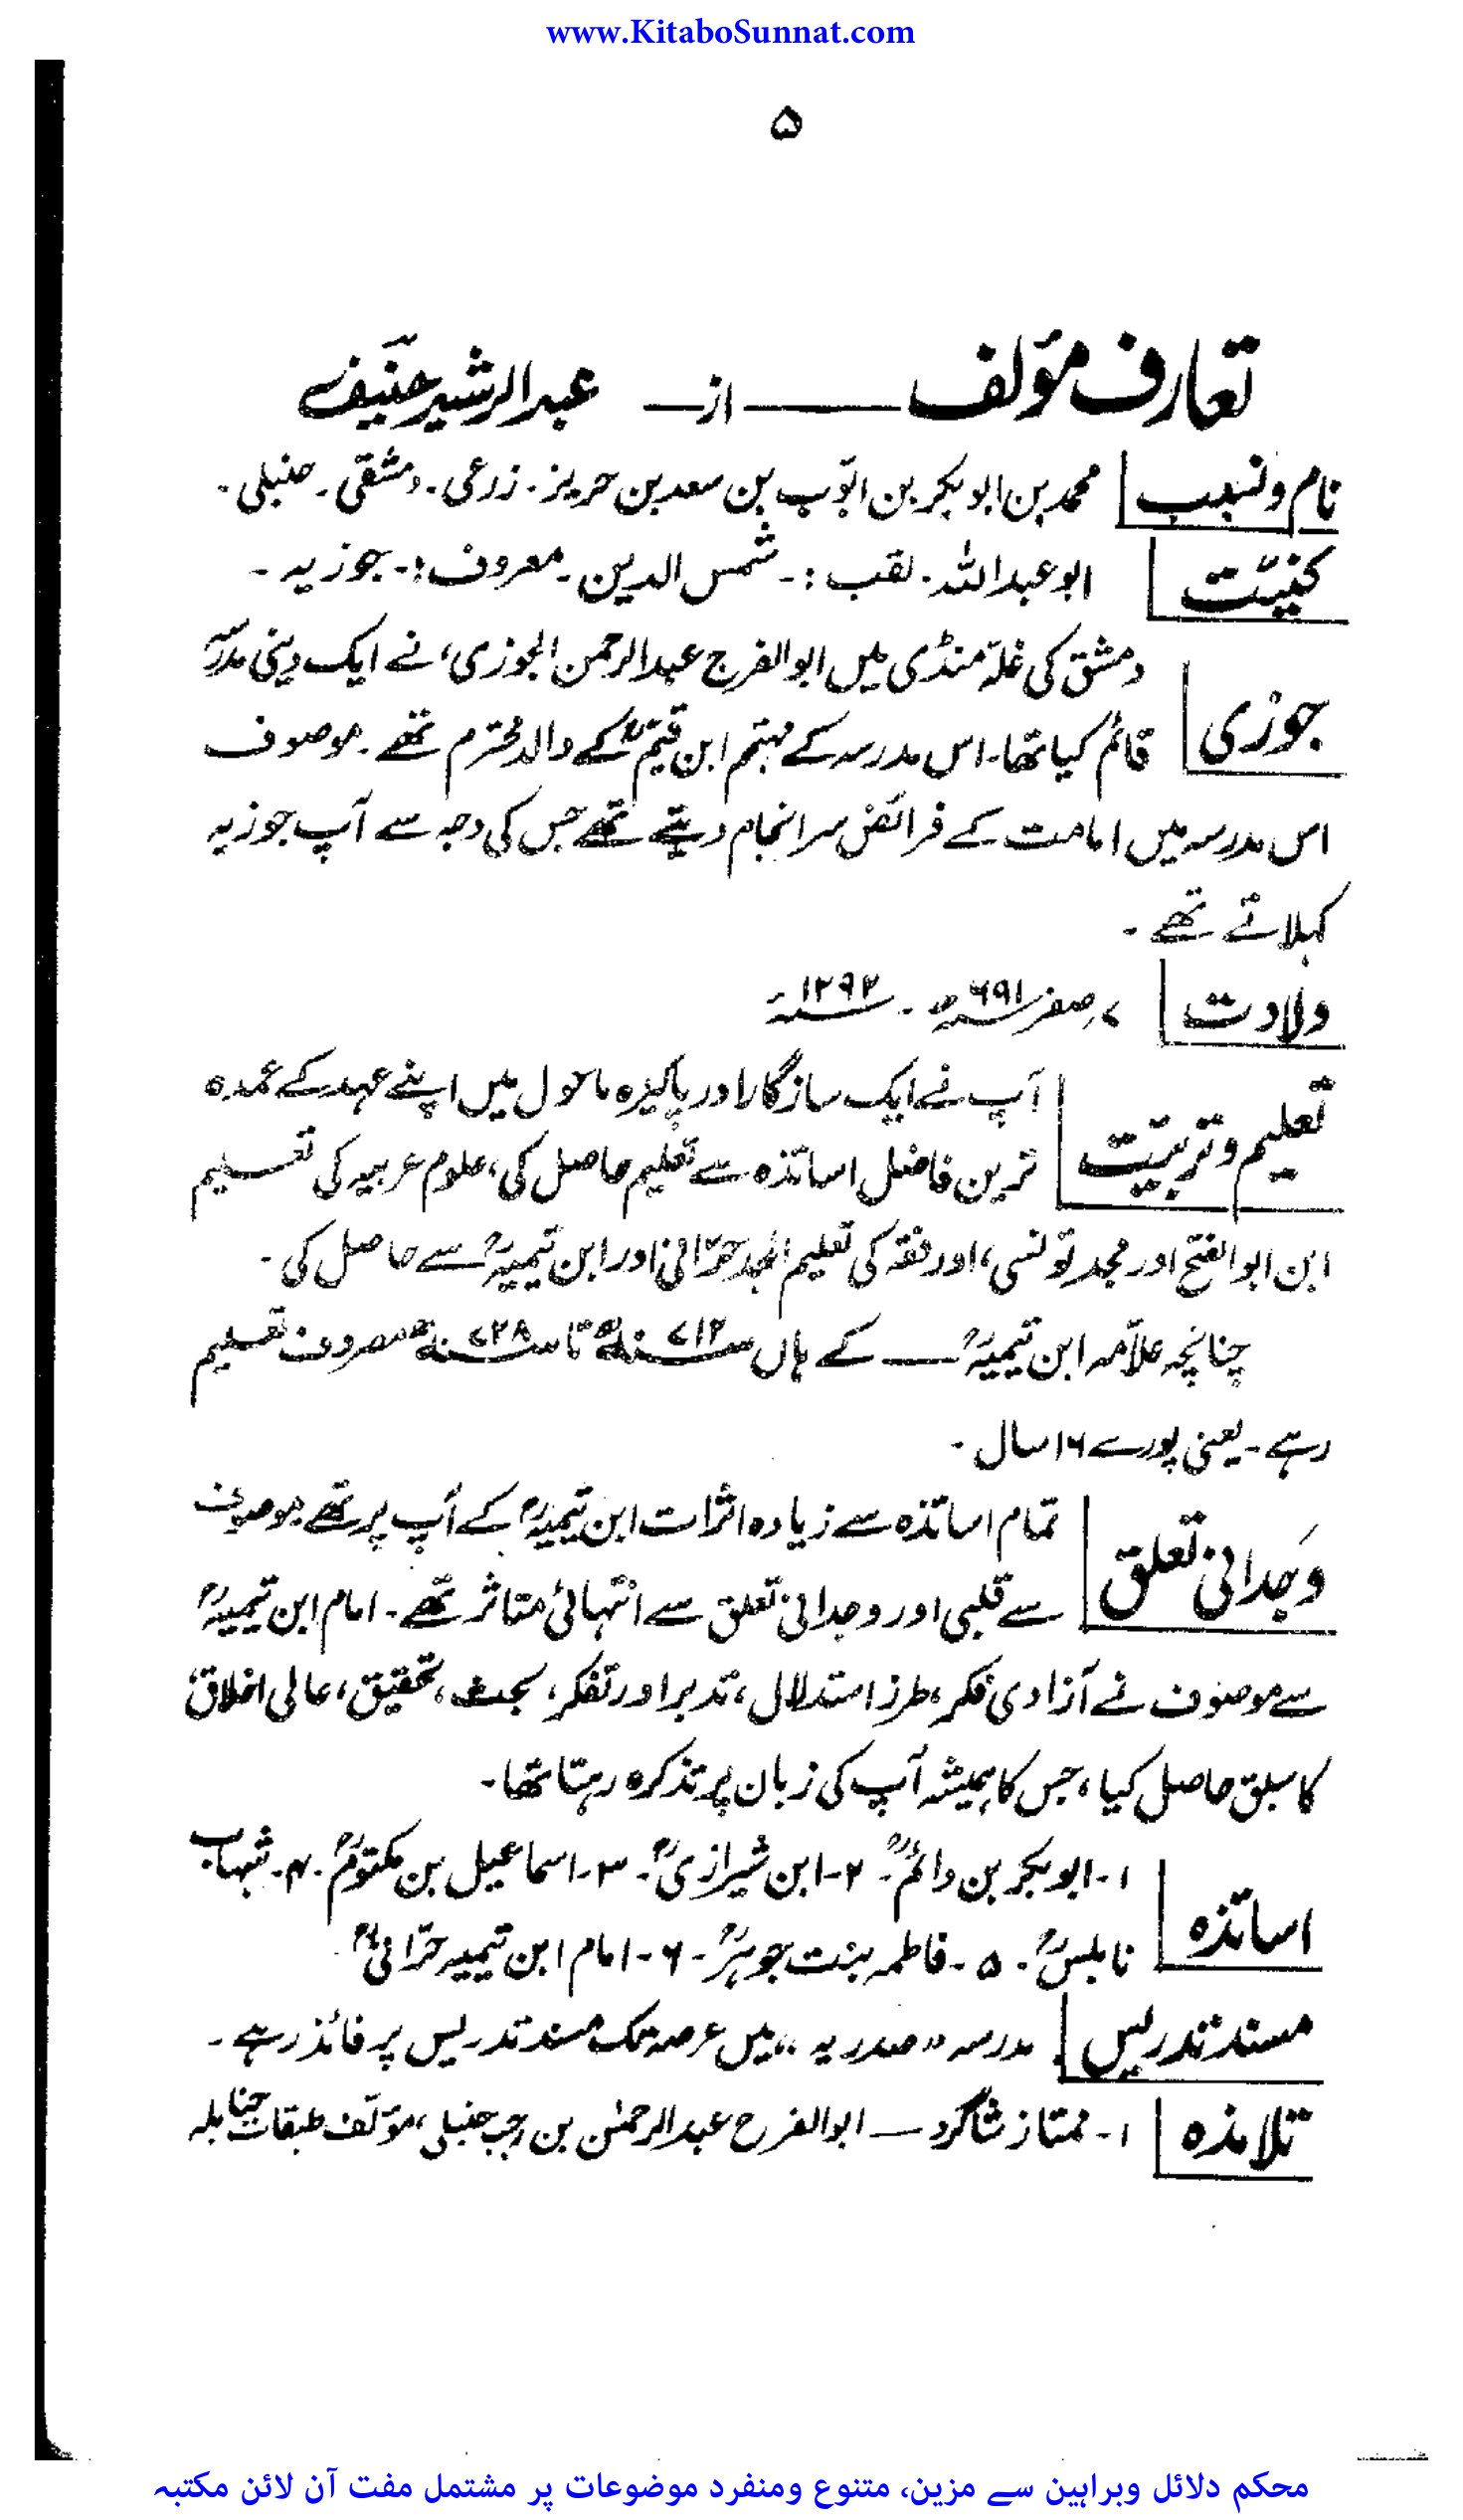 www.KitaboSunnat.com
۵
تعارف مؤلف ــــــ از ــــ عبدالرشید حنیف
نام و نسب محمد بن ابوبکر بن ایّوب بن سعد بن حریز۔ زرعی۔ دمشقی۔ حنبلی۔
کنیّت ابوعبداللہ۔ لقب :۔ شمس الدین۔ معروف :۔ جوزیہ۔
دمشق کی غلّہ منڈی میں ابوالفرج عبدالرحمن الجوزی، نے ایک دینی مدرسہ
جوزی قائم کیا تھا۔ اس مدرسہ کے مہتمم ابن قیمؒ کے والد محترم تھے۔ موصوف
اس مدرسہ میں امامت کے فرائض سرانجام دیتے تھے جس کی وجہ سے آپ جوزیہ
کہلاتے تھے۔
ولادت ۷؍صفر ۶۹۱ھ ۔ ۱۲۹۲ء
آپ نے ایک سازگار اور پاکیزہ ماحول میں اپنے عہد کے عمدہ
تعلیم و تربیّت ترین فاضل اساتذہ سے تعلیم حاصل کی، علوم عربیہ کی تعلیم
ابن ابوالفتح اور مجد تونسی، اور فقہ کی تعلیم المجد حرّانی اور ابن تیمیہؒ سے حاصل کی۔
چنانچہ علاّمہ ابن تیمیہؒ ــــ کے ہاں ۷۱۲ھ تا ۷۲۸ھ مصروف تعلیم
رہے۔ یعنی پورے ۱۶ سال۔
تمام اساتذہ سے زیادہ اثرات ابن تیمیہؒ کے آپ پر تھے موصوف
وجدانی تعلق سے قلبی اور وجدانی تعلق سے انتہائی متاثر تھے۔ امام ابن تیمیہؒ
سے موصوف نے آزادی فکر، طرز استدلال، تدبر اور تفکر، بحث، تحقیق، عالی اخلاق
کا سبق حاصل کیا، جس کا ہمیشہ آپ کی زبان پر تذکرہ رہتا تھا۔
۱۔ ابوبکر بن دائمؒ۔ ۲۔ ابن شیرازیؒ۔ ۳۔ اسماعیل بن مکتومؒ۔ ۴۔ شہاب
اساتذہ نابلسؒ۔ ۵۔ فاطمہ بنت جوہرؒ۔ ۶۔ امام ابن تیمیہ حرّانیؒ۔
مسند تدریس مدرسہ "صدریہ" میں عرصہ تک مسند تدریس پر فائز رہے۔
تلامذہ ۱۔ ممتاز شاگرد ــــ ابوالفرح عبدالرحمٰن بن رجب حنبلی، مؤلف طبقات حنابلہ
محکم دلائل وبراہین سے مزین، متنوع ومنفرد موضوعات پر مشتمل مفت آن لائن مکتبہ